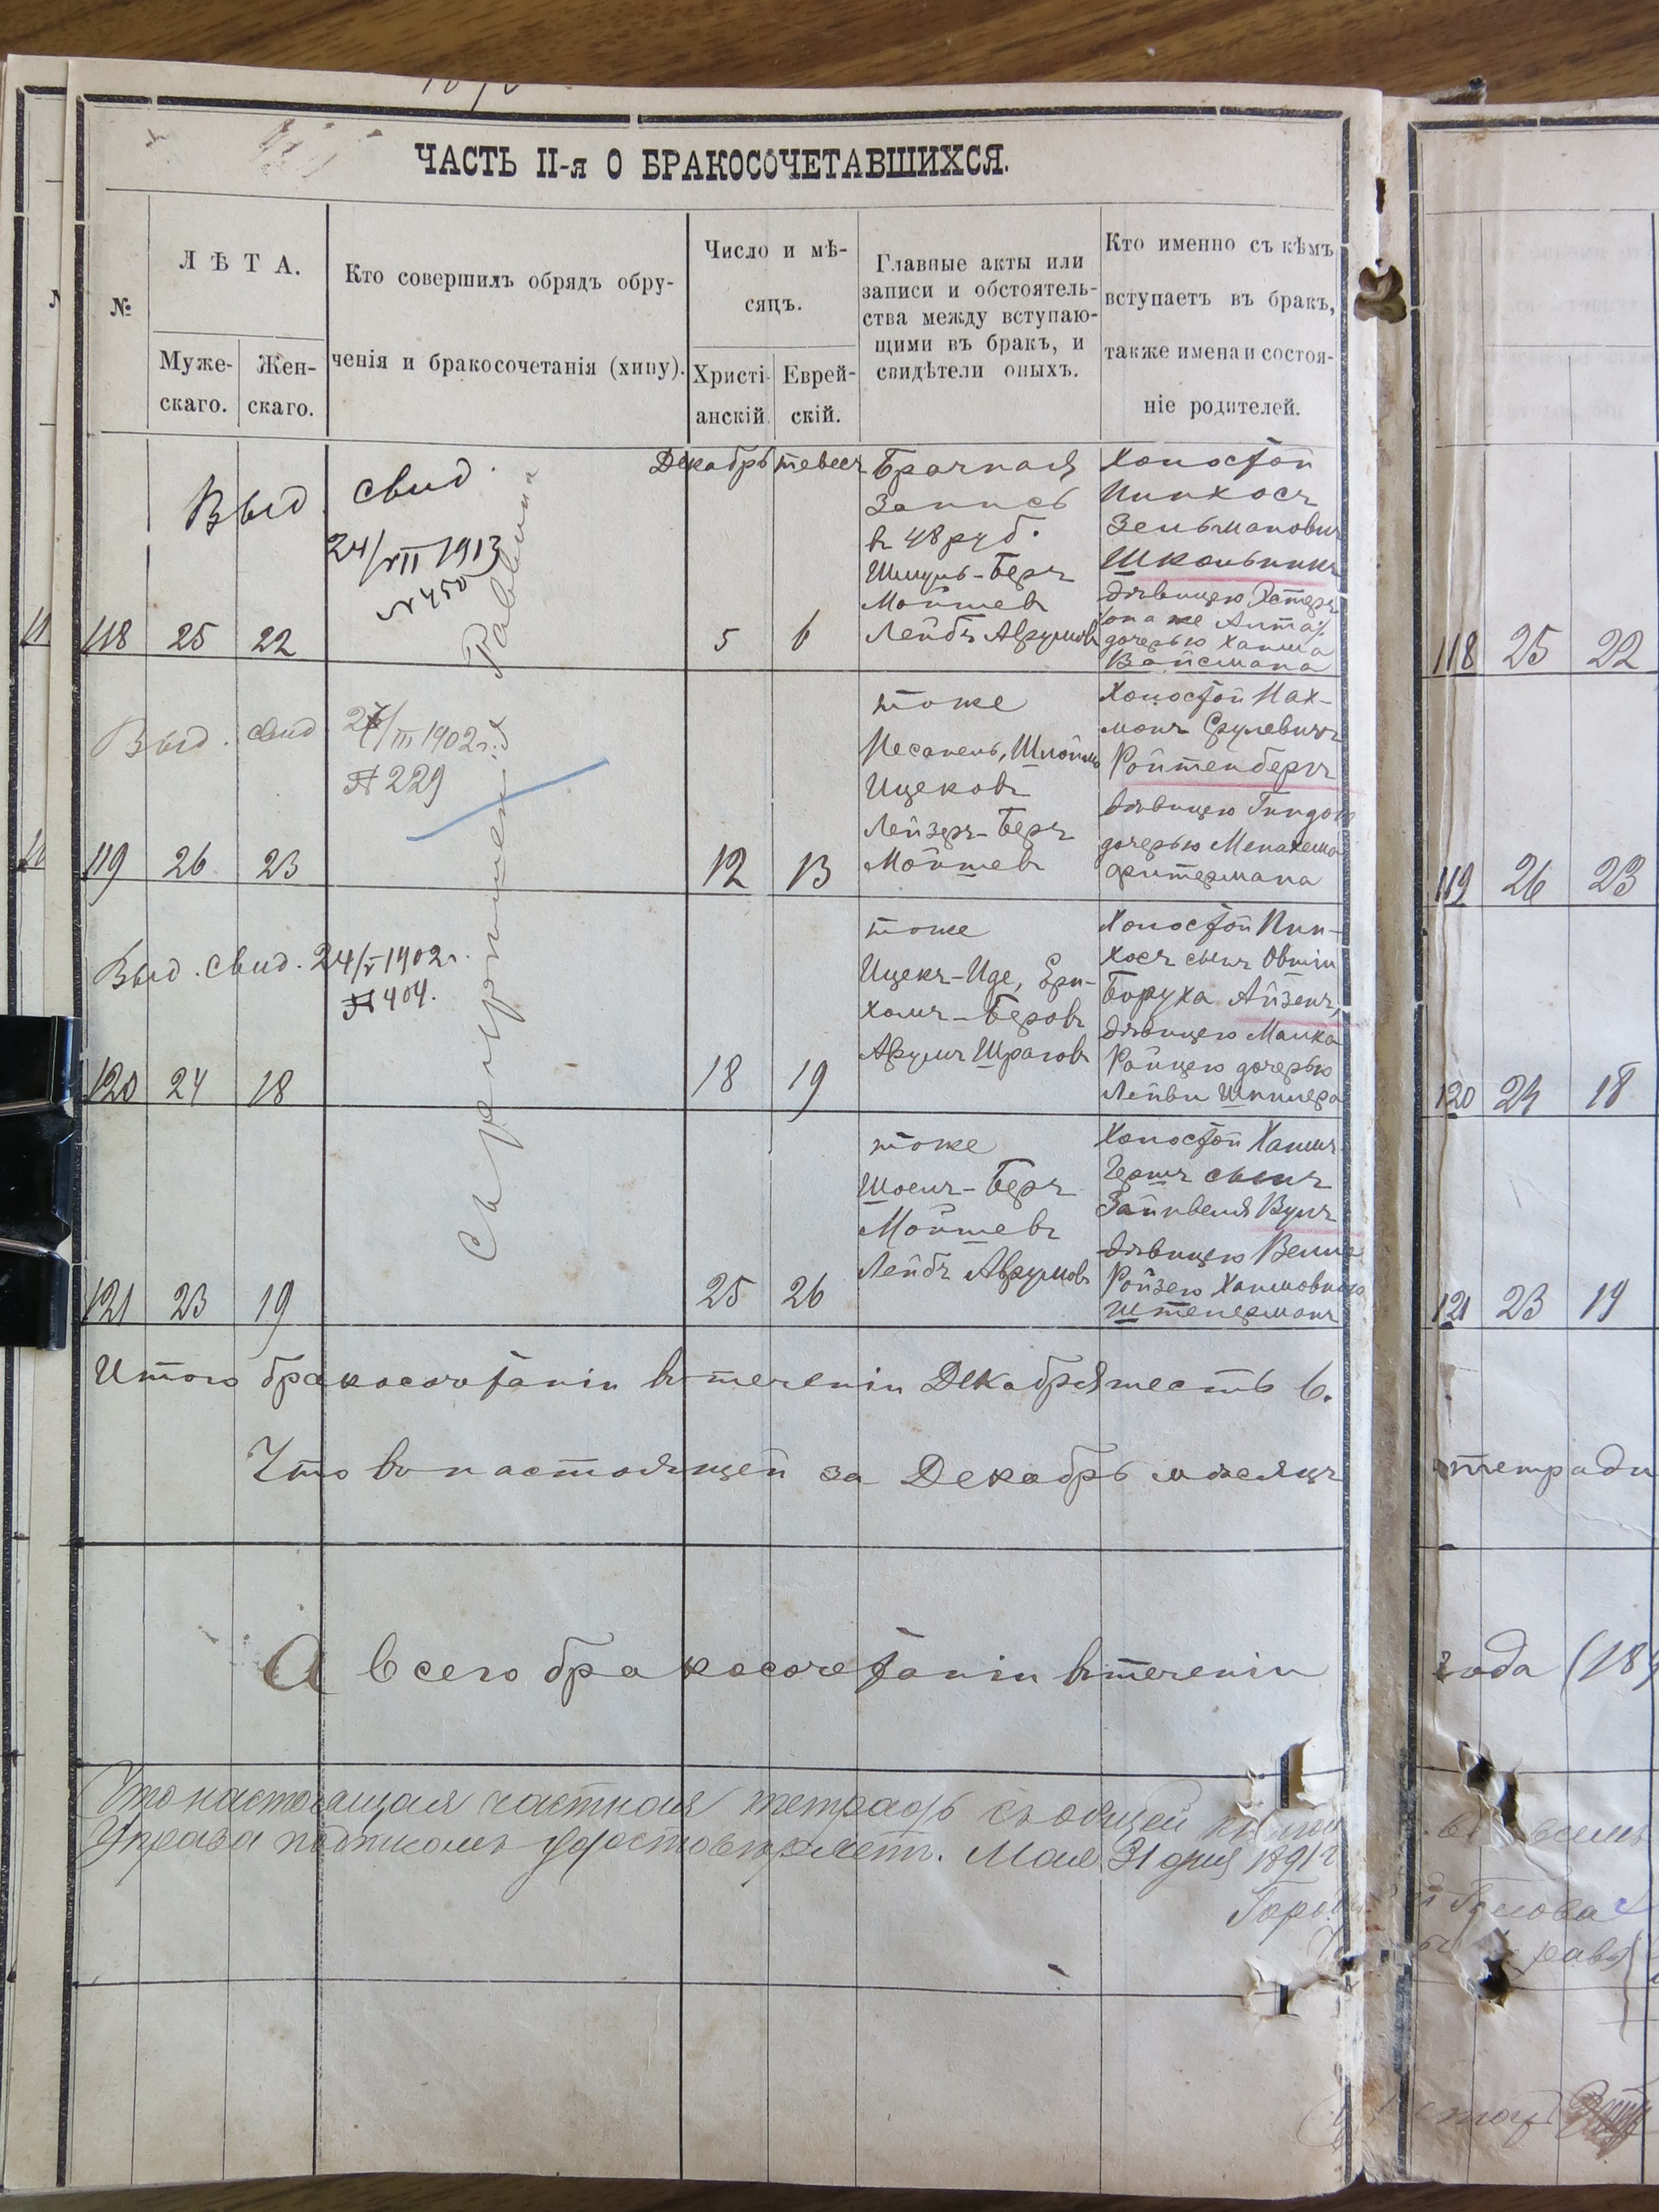 ЧАСТЬ II-я О БРАКОСОЧЕТАВШИХСЯ.
№
ЛѢТА.
Муже-
скаго.
Жен-
скаго.
Кто совершилъ обрядъ обру-
ченія и бракосочетанія (хипу).
Число и мѣ-
сяцъ.
Христі-
анскій.
Еврей-
скій.
Главные акты или
записи и обстоятель-
ства между вступаю-
щими въ бракъ, и
свидѣтели оныхъ.
Кто именно съ кѣмъ
вступаетъ въ бракъ,
также имена и состоя-
ніе родителей.
Декабрь
тевесъ
118 25 22
Выд. свид.
24/VII 1913
№ 450
5 6
Брачная
Запись
въ 48 руб.
Шмуль-Беръ
Мойшевъ
Лейбъ Аврумовъ
Холостой
Пинхосъ
Зельмановичъ
Школьникъ
дѣвицею Эстеръ
/она же Алта/
дочерью Хаима
Вайсмана
Совершенъ Раввина
119 26 23
Выд. свид.
27/III 1902 г.
№ 229
12 13
тоже
Песапель, Шлойма
Ицековъ
Лейзеръ-Беръ
Мойшевъ
Холостой Нах-
монъ Срулевичъ
Ройтенбергъ
дѣвицею Гиндою
дочерью Менахема
Фитермана
120 24 18
Выд. свид. 24/V 1902 г.
№ 404.
18 19
тоже
Ицекъ-Иде, Ери-
хомъ-Беровъ
Аврумъ Шраговъ
Холостой Пин-
хосъ сынъ Овши
Боруха Айзенъ,
дѣвицею Малка
Райцею дочерью
Лейви Шпилера
121 23 19
25 26
тоже
Шоелъ-Беръ
Мойшевъ
Лейбъ Аврумовъ
Холостой Хаимъ
Гершъ сынъ
Зайнвеля Вулъ
дѣвицею
Ройзею Хаимовною
Штенерманъ
Итого бракосочетаніи въ теченіи Декабря шесть 6.
Что въ настоящей за Декабрь мѣсяцъ
тетради
А всего бракосочетаніи въ теченіи
года (189
Что настоящая частная тетрадь съ общей
Управа подписомъ удостовѣряетъ. Мая 31 дня 1891 г.
Голова
118 25 22
119 26 23
120 24 18
121 23 19